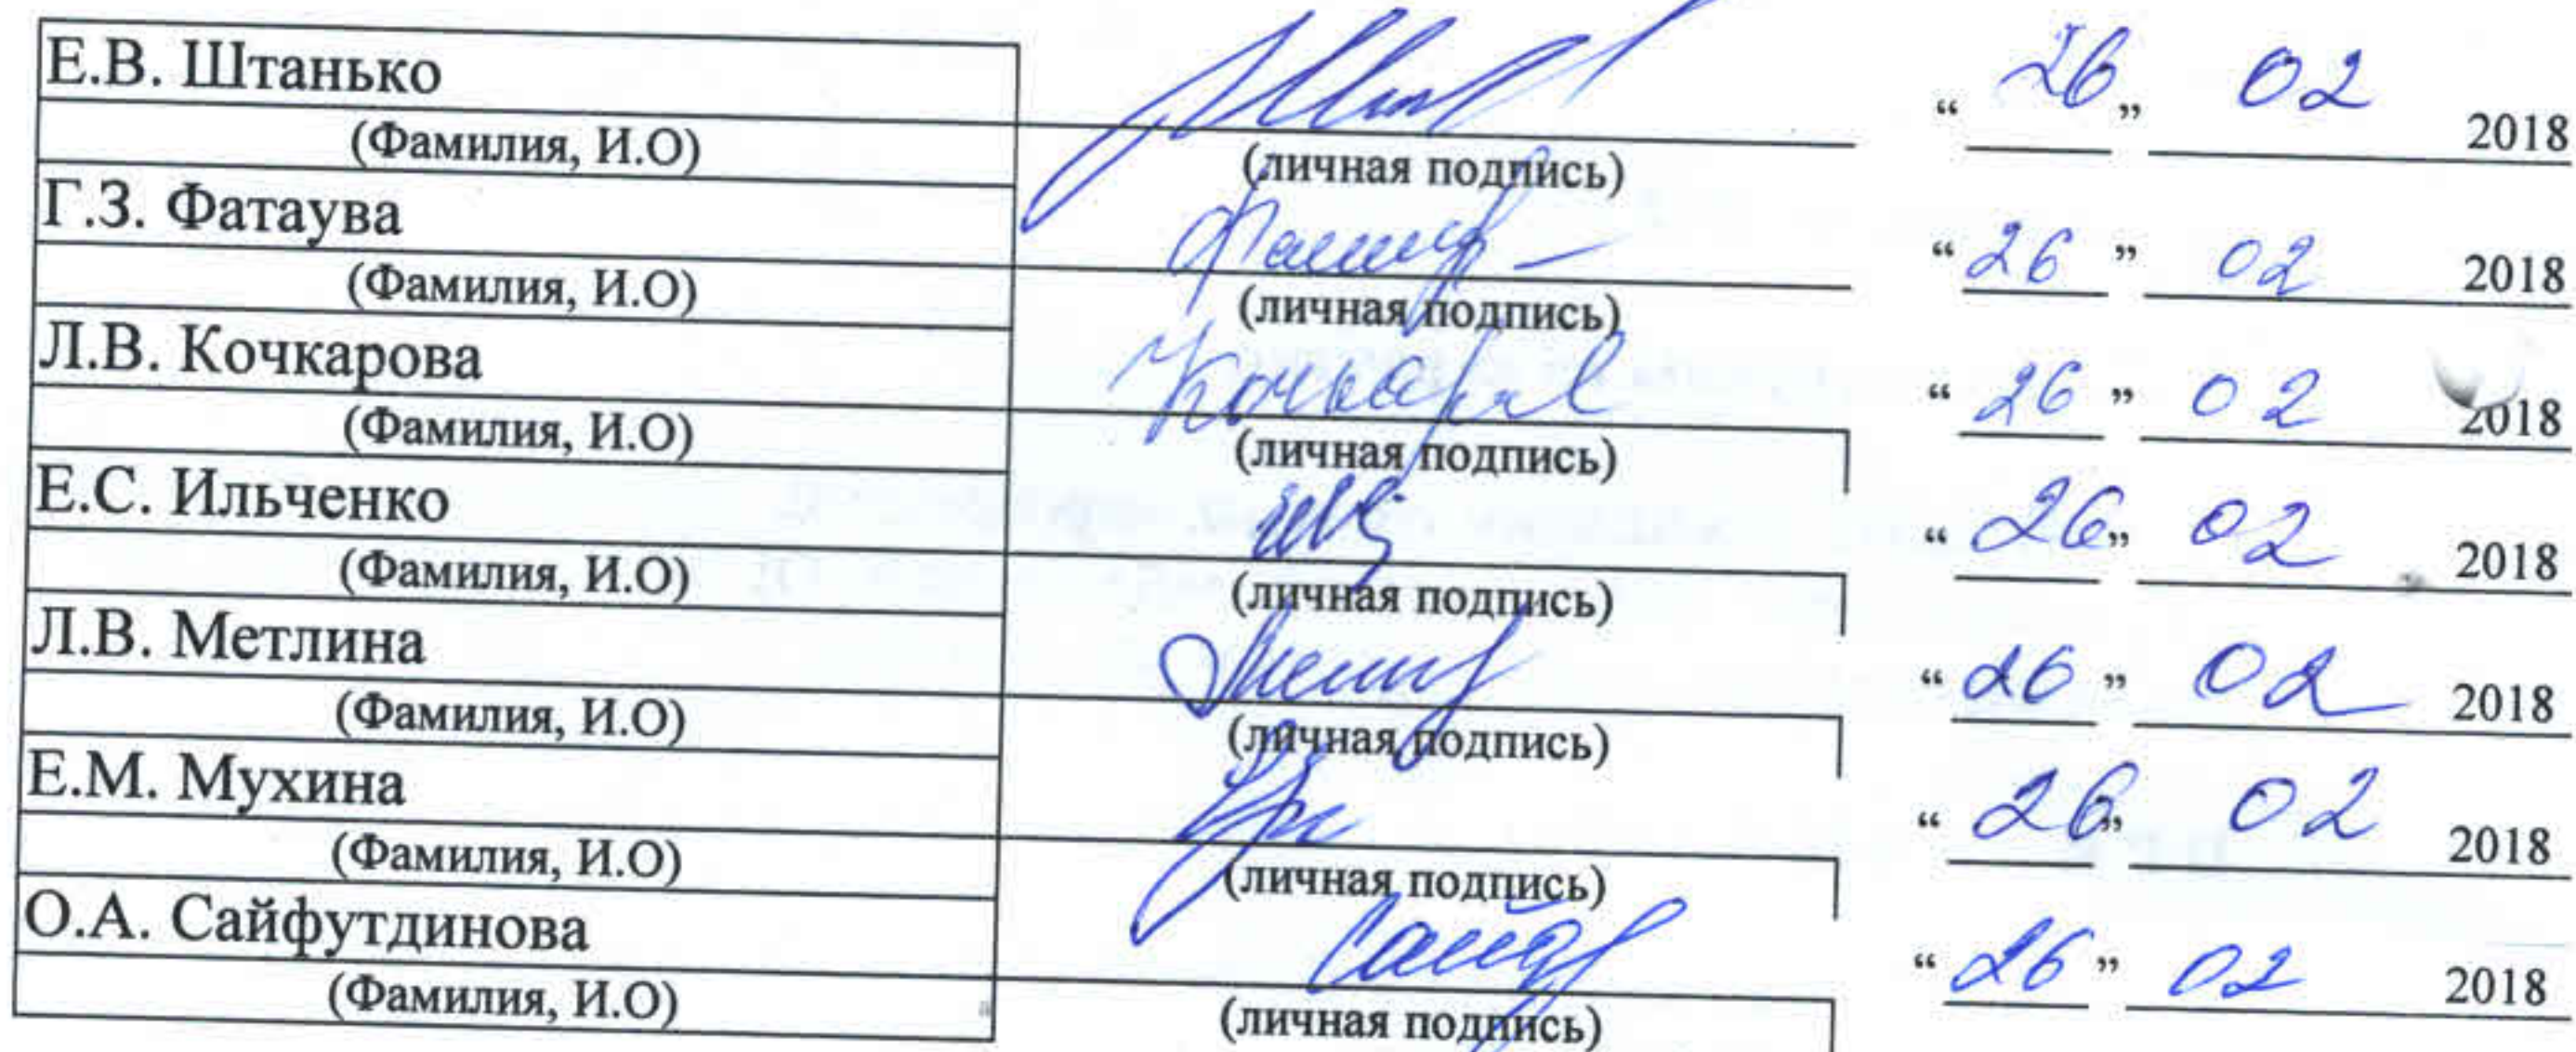 Е.В. Штанько “ 26 ” 02 2018
(Фамилия, И.О) (личная подпись)
Г.З. Фатаува “ 26 ” 02 2018
(Фамилия, И.О) (личная подпись)
Л.В. Кочкарова “ 26 ” 02 2018
(Фамилия, И.О) (личная подпись)
Е.С. Ильченко “ 26 ” 02 2018
(Фамилия, И.О) (личная подпись)
Л.В. Метлина “ 26 ” 02 2018
(Фамилия, И.О) (личная подпись)
Е.М. Мухина “ 26 ” 02 2018
(Фамилия, И.О) (личная подпись)
О.А. Сайфутдинова “ 26 ” 02 2018
(Фамилия, И.О) (личная подпись)